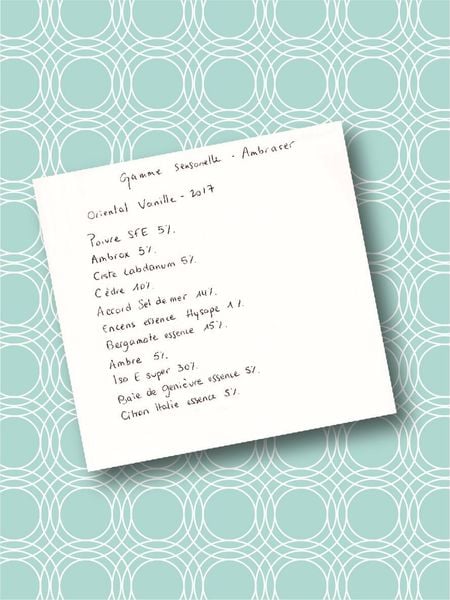 Gamme sensorielle - Ambraser
Oriental Vanille - 2017
Poivre SFE 5%.
Ambrox 5%.
Ciste Labdanum 5%.
Cèdre 10%.
Accord Sel de mer 14%.
Encens essence Hysope 1%.
Bergamote essence 15%.
Ambre 5%.
Iso E super 30%.
Baie de genièvre essence 5%.
Citron Italie essence 5%.